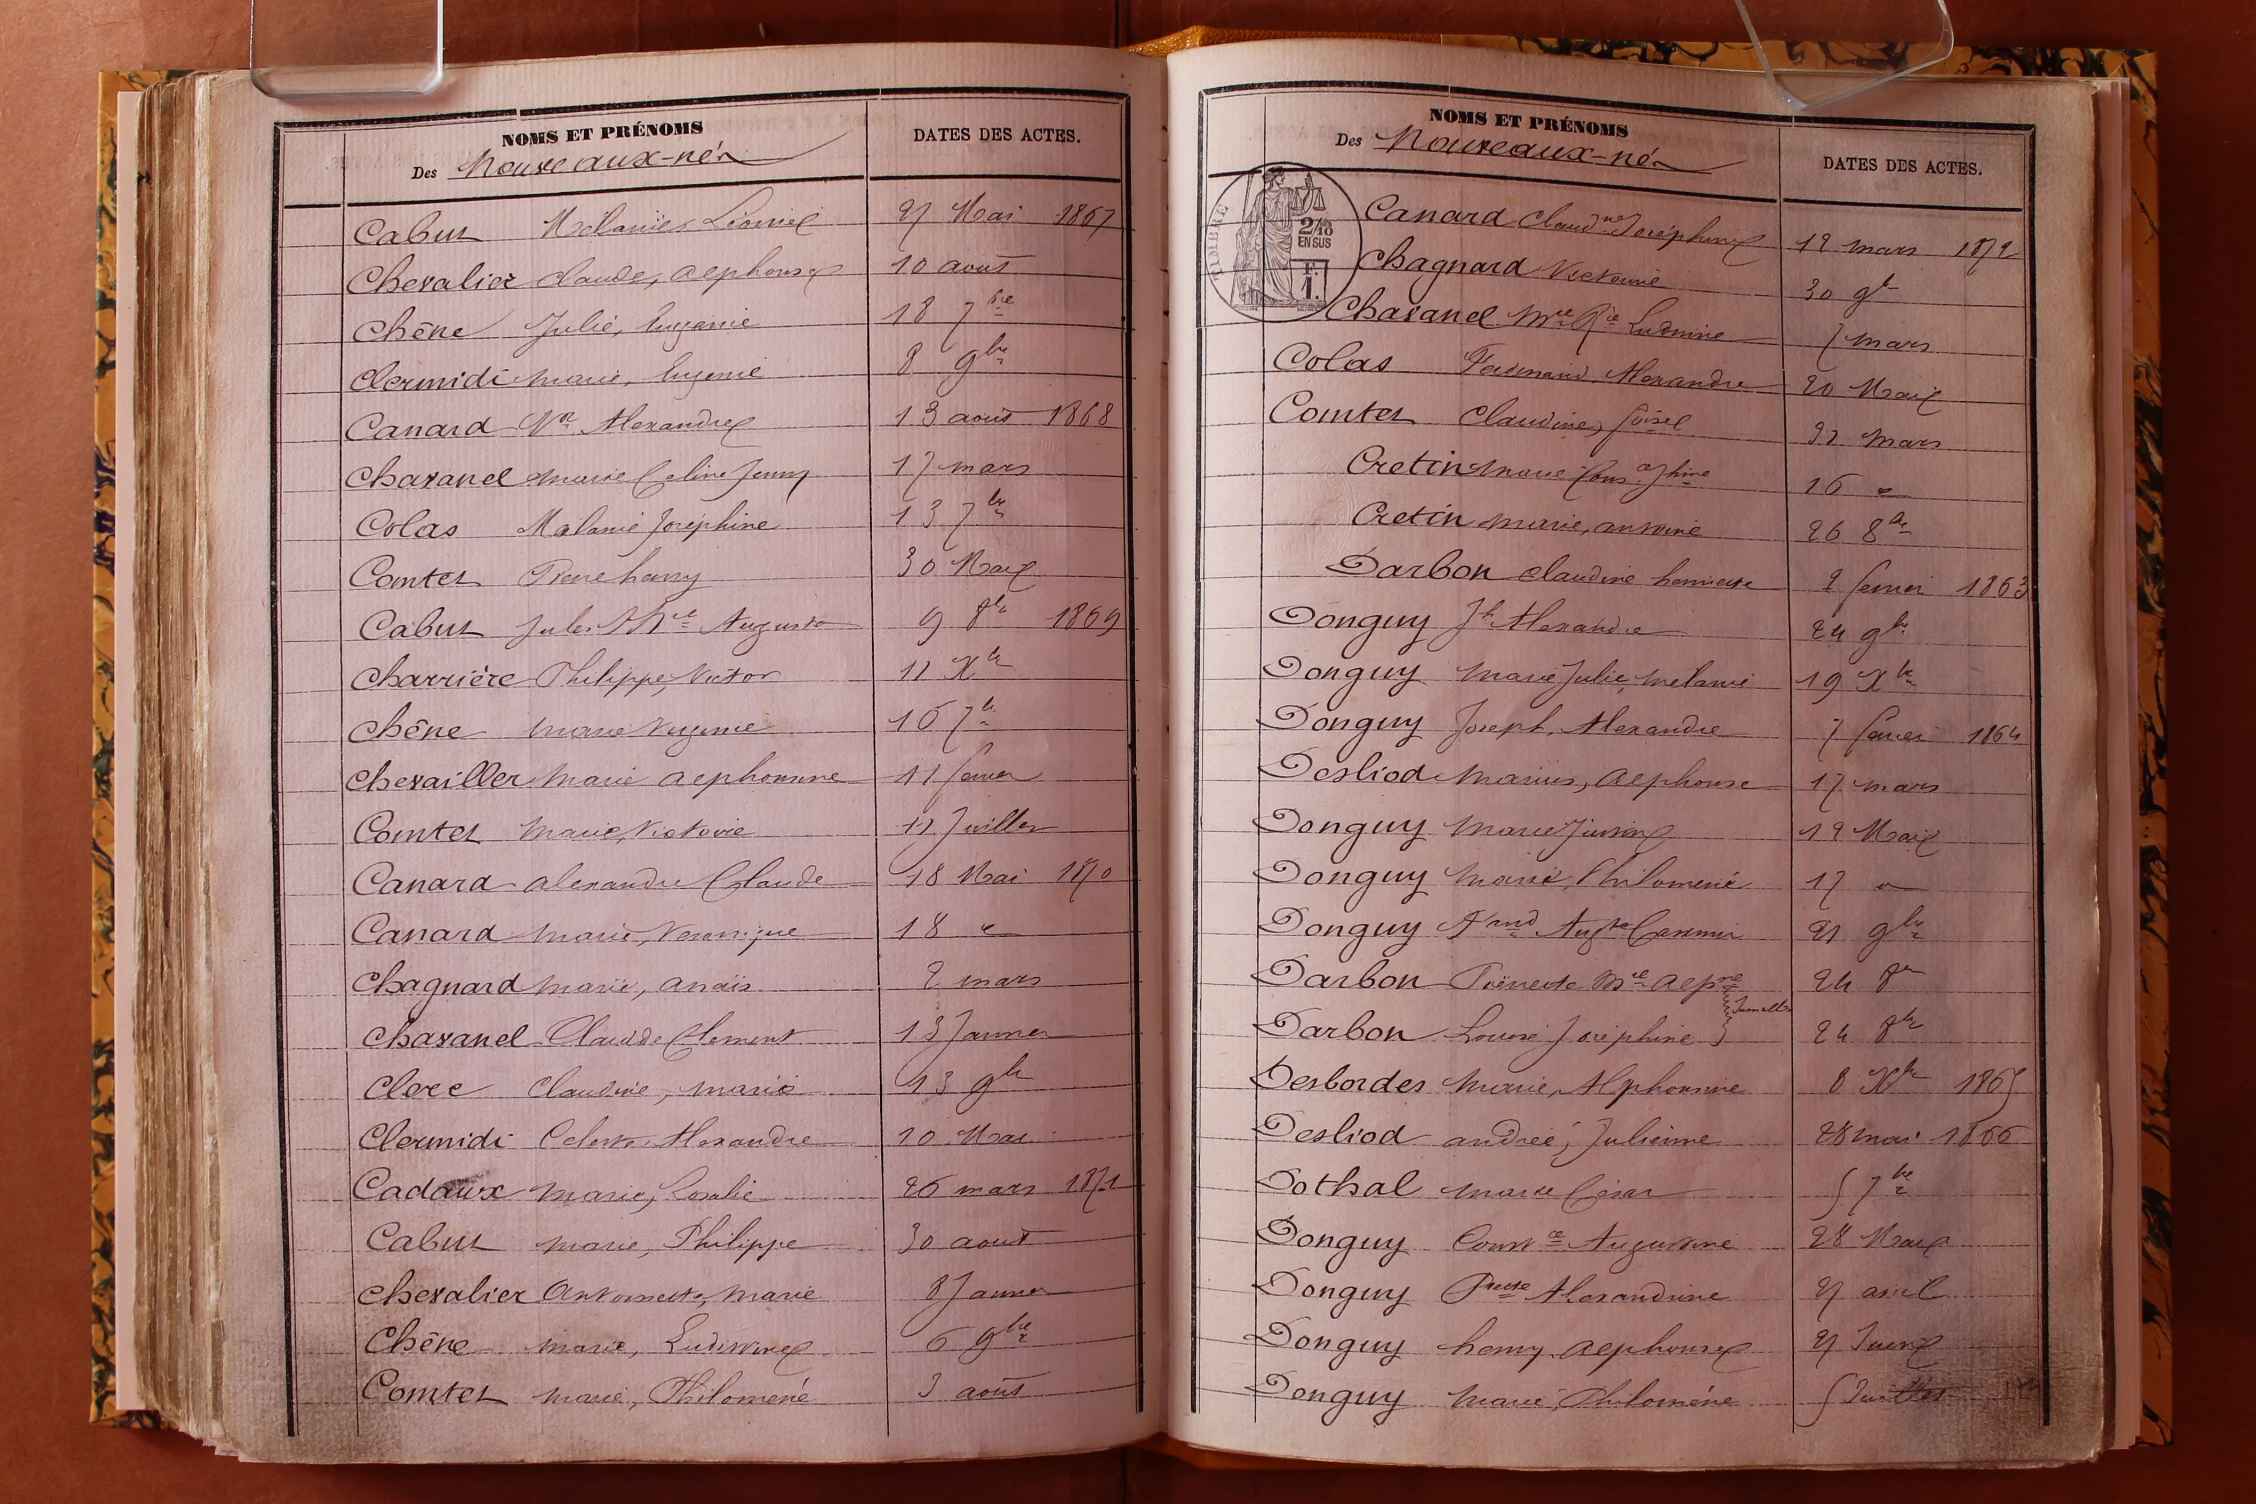 NOMS ET PRÉNOMS
DATES DES ACTES.
Des Nouveaux-nés
Cabut Mélanie Léonie 27 Mai 1867
Chevalier Claude, Alphonse 10 août
Chêne Julie, Eugénie 18 7bre
Clermidi Marie, Eugénie 8 9bre
Canard Alexandre 13 août 1868
Chavanel Marie Celine Jenny 17 mars
Colas Mélanie Joséphine 13 7bre
Comtet Pierre henry 30 Mai
Cabut Jules Auguste 9 8bre 1869
Charrière Philippe, Victor 11 Xbre
Chêne Marie Eugénie 16 7bre
Chevailler Marie Alphonsine 11 février
Comtet Marie, Victorie 11 Juillet
Canard Alexandre Claude 18 Mai 1870
Canard Marie, Véronique 18 "
Chagnard Marie, Anaïs 2 mars
Chavanel Claude Clement 13 Janvier
Clerc Claudine, Marie 13 9bre
Clermidi Alexandre 10 Mai
Cadaux Marie, Rosalie 26 mars 1871
Cabut Marie, Philippe 30 août
Chevalier Antoinette, Marie 8 Janvier
Chêne Marie, Ludivine 6 9bre
Comtet Marie, Philomène 3 août
NOMS ET PRÉNOMS
DATES DES ACTES.
Des Nouveaux-nés
TIMBRE
2/10
EN SUS
F.
1.
Canard Claudne Joséphine 12 mars 1872
Chagnard Victorine 30 9bre
Chavanel Mie Ludivine 7 mars
Colas Ferdinand Alexandre 20 Mai
Comtet Claudine, 31 mars
Cretin Marie 16 "
Cretin Marie, Antoine 26 8bre
Darbon Claudine henriette 2 février 1863
Donguy Jh Alexandre 24 9bre
Donguy Marie Julie, Mélanie 19 Xbre
Donguy Joseph, Alexandre 7 février 1864
Desliod Marius, Alphonse 17 mars
Donguy Marie Justine 12 Mai
Donguy Marie, Philomène 17 "
Donguy Casimir 21 9bre
Darbon Pierrette Mie 24 8bre
Jumelles
Darbon Louise Joséphine 24 8bre
Desbordes Marie, Alphonsine 8 Xbre 1865
Desliod Andrée, Julienne 28 mai 1866
Dothal Marie César 5 7bre
Donguy Augustine 28 Mai
Donguy Alexandrine 27 avril
Donguy henry, Alphonse 27 Juin
Donguy Marie, Philomène 5 Juillet